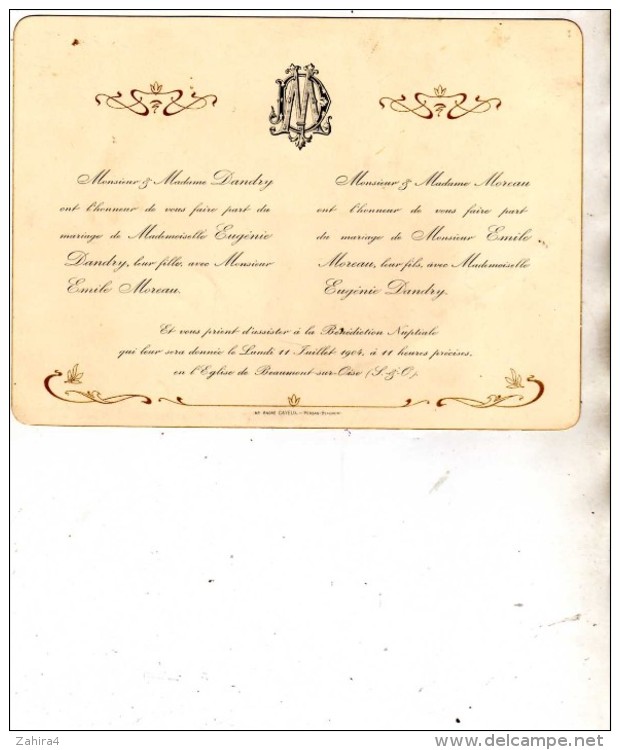 Monsieur & Madame Dandry
ont l'honneur de vous faire part du
mariage de Mademoiselle Eugénie
Dandry, leur fille, avec Monsieur
Emile Moreau.
Monsieur & Madame Moreau
ont l'honneur de vous faire part
du mariage de Monsieur Emile
Moreau, leur fils, avec Mademoiselle
Eugénie Dandry.
Et vous prient d'assister à la Bénédiction Nuptiale
qui leur sera donnée le Lundi 11 Juillet 1904, à 11 heures précises,
en l'Eglise de Beaumont-sur-Oise (S.-&-O.)
Zahira4
www.delcampe.net